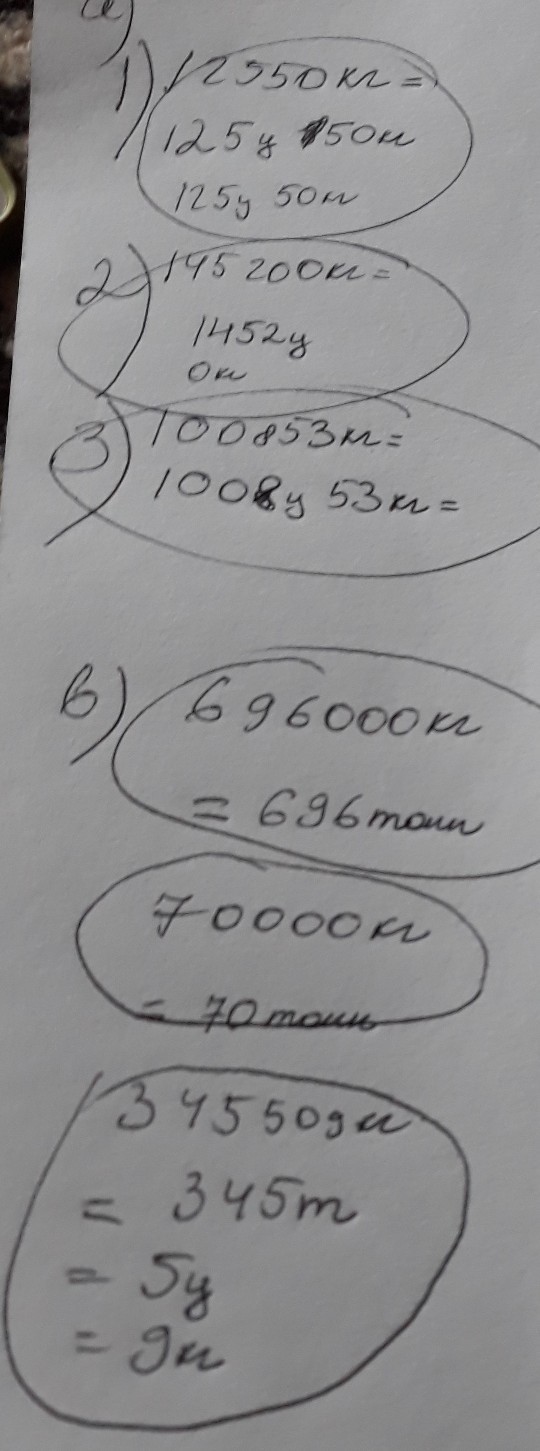 а)
1) 12550кг =
125ц 50кг
125ц 50кг
2) 145200кг =
1452ц
0кг
3) 100853кг =
1008ц 53кг =
в)
696000кг
= 696тонн
70000кг
= 70тонн
34550дм
= 345т
= 5ц
= 9кг